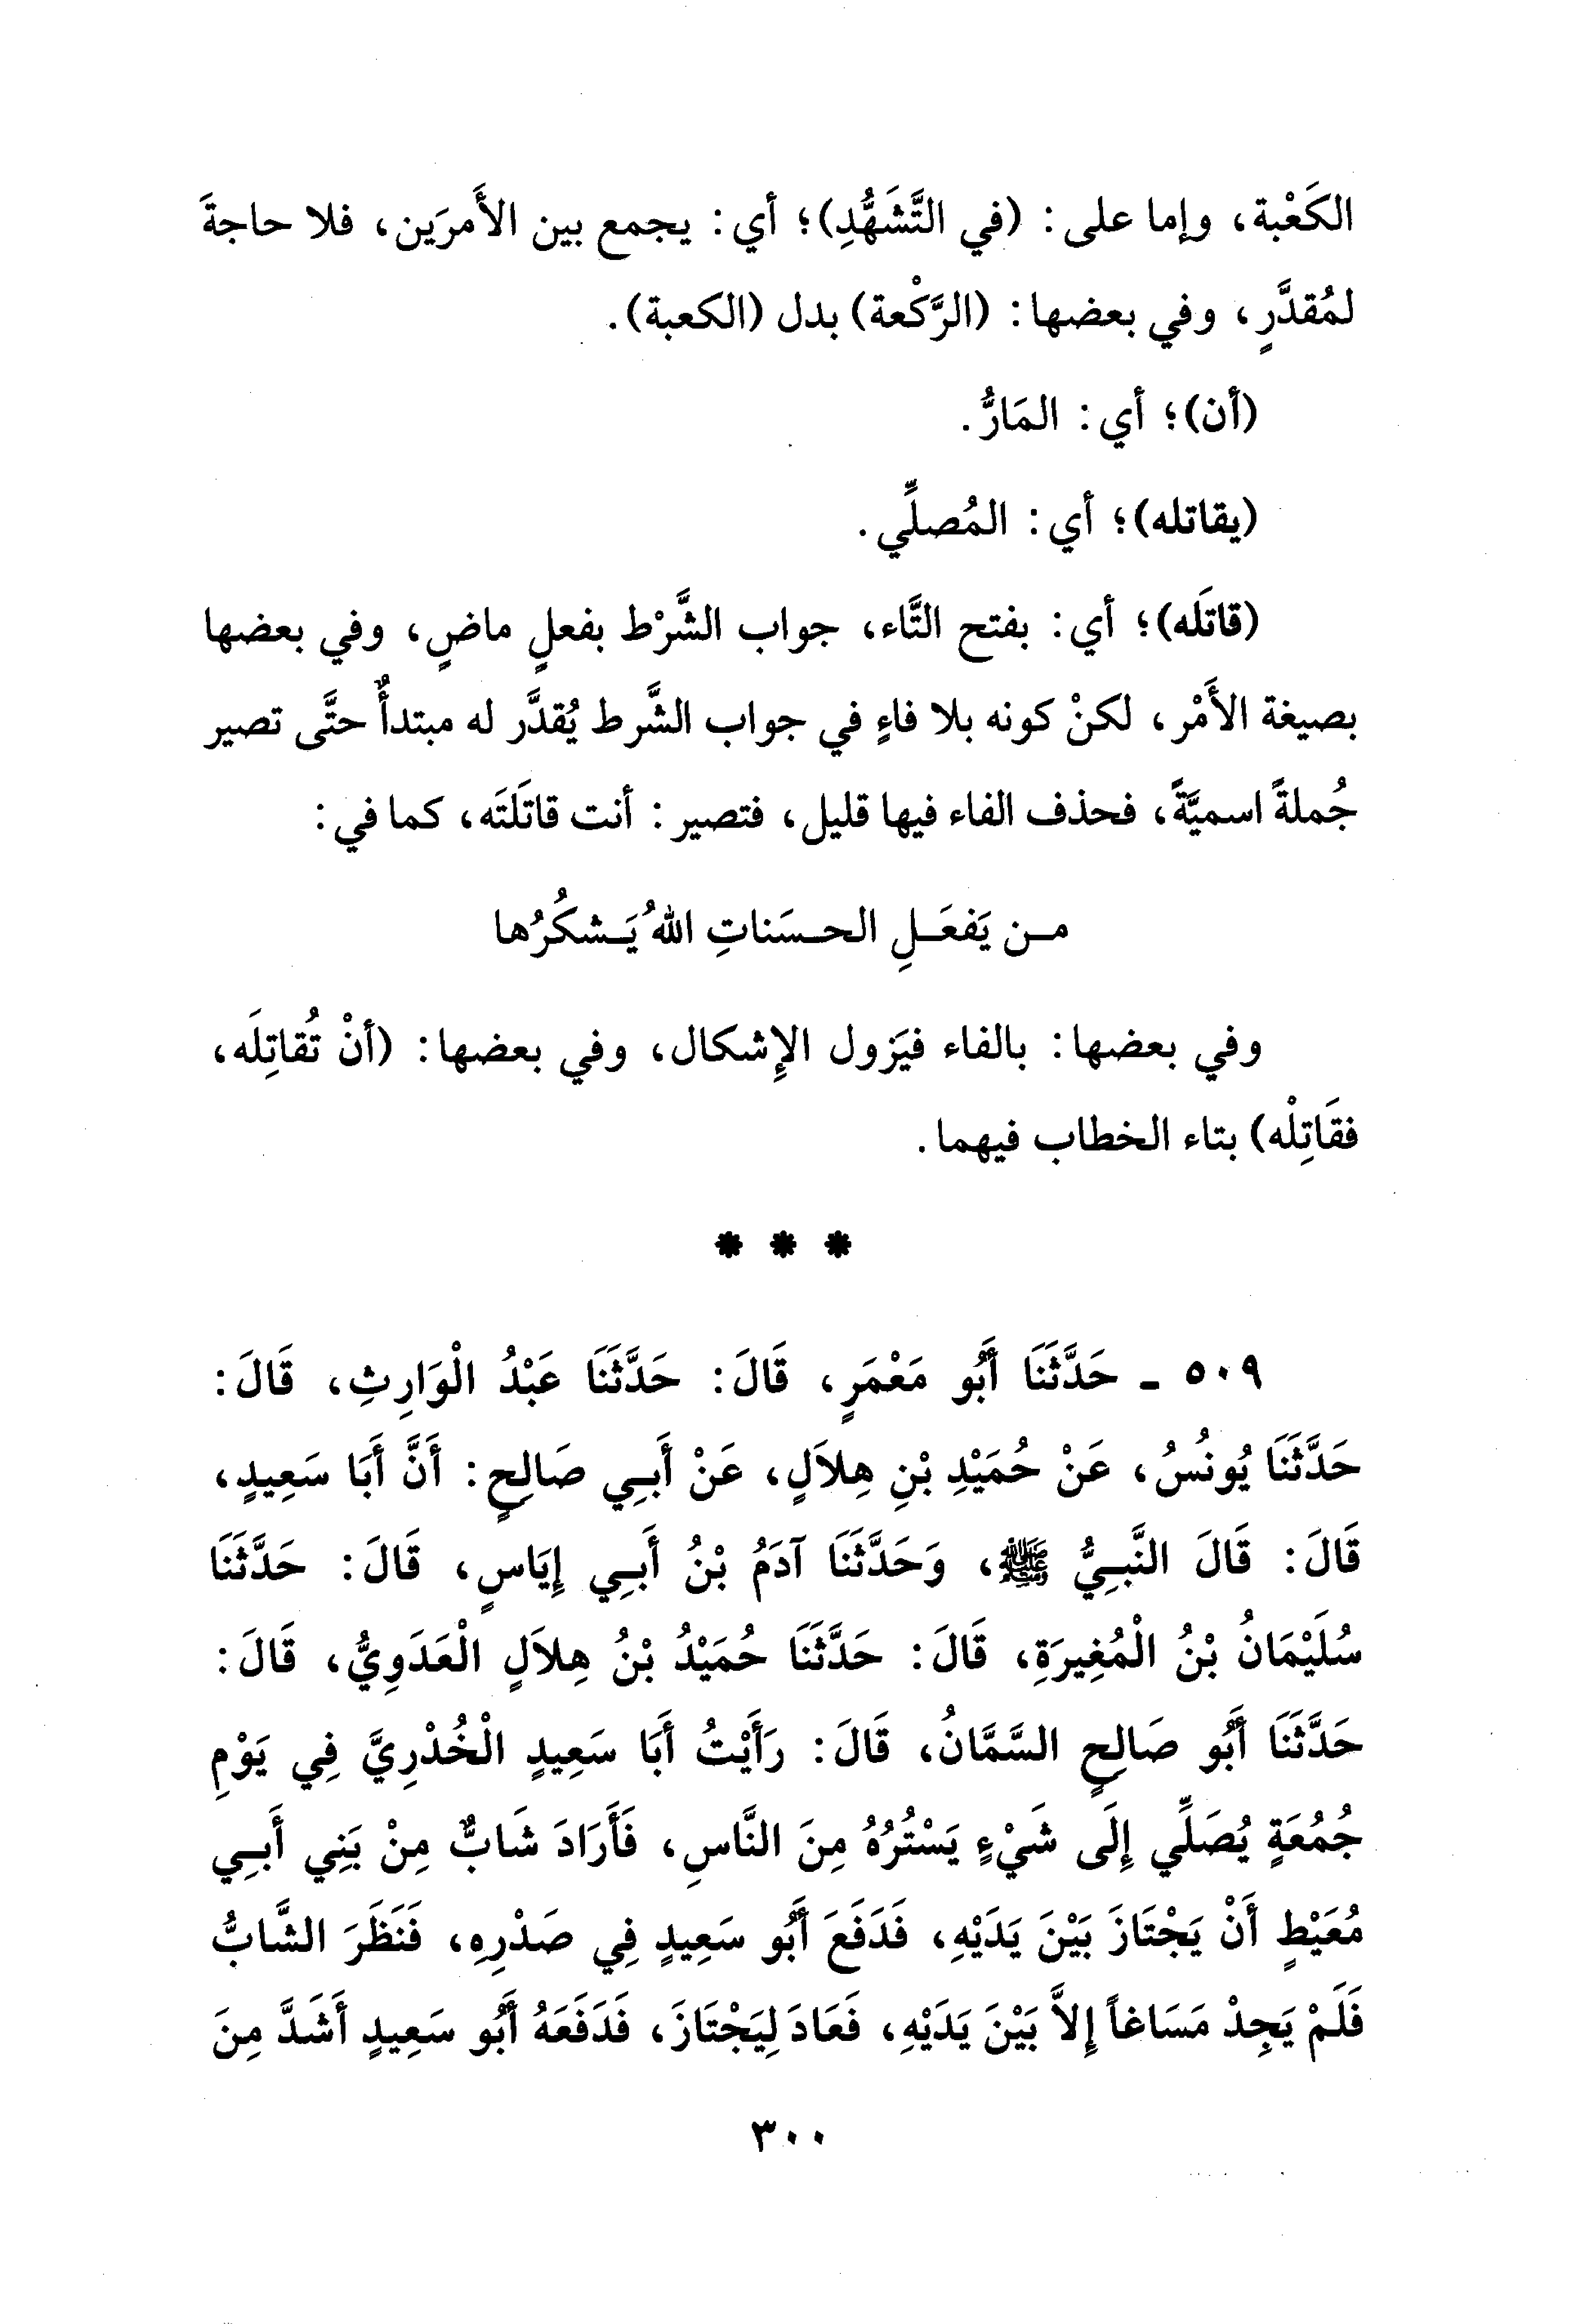 الكَعْبة، وإما على: (في التَّشَهُّدِ)؛ أي: يجمع بين الأَمرَين، فلا حاجةَ
لمُقدَّرٍ، وفي بعضها: (الرَّكْعة) بدل (الكعبة).
(أن)؛ أي: المَارُّ.
(يقاتله)؛ أي: المُصلِّي.
(قاتَله)؛ أي: بفتح التَّاء، جواب الشَّرْط بفعلٍ ماضٍ، وفي بعضها
بصيغة الأَمْر، لكنْ كونه بلا فاءٍ في جواب الشَّرط يُقدَّر له مبتدأٌ حتَّى تصير
جُملةً اسميَّةً، فحذف الفاء فيها قليل، فتصير: أنت قاتَلتَه، كما في:
مـن يَفعَـلِ الحـسَناتِ اللهُ يَـشكُرُها
وفي بعضها: بالفاء فيَزول الإِشكال، وفي بعضها: (أنْ تُقاتِلَه،
فقَاتِلْه) بتاء الخطاب فيهما.
* * *
٥٠٩ - حَدَّثَنَا أَبُو مَعْمَرٍ، قَالَ: حَدَّثَنَا عَبْدُ الْوَارِثِ، قَالَ:
حَدَّثَنَا يُونُسُ، عَنْ حُمَيْدِ بْنِ هِلاَلٍ، عَنْ أَبِي صَالِحٍ: أَنَّ أَبَا سَعِيدٍ،
قَالَ: قَالَ النَّبِيُّ ﷺ، وَحَدَّثَنَا آدَمُ بْنُ أَبِي إِيَاسٍ، قَالَ: حَدَّثَنَا
سُلَيْمَانُ بْنُ الْمُغِيرَةِ، قَالَ: حَدَّثَنَا حُمَيْدُ بْنُ هِلاَلٍ الْعَدَوِيُّ، قَالَ:
حَدَّثَنَا أَبُو صَالِحٍ السَّمَّانُ، قَالَ: رَأَيْتُ أَبَا سَعِيدٍ الْخُدْرِيَّ فِي يَوْمِ
جُمُعَةٍ يُصَلِّي إِلَى شَيْءٍ يَسْتُرُهُ مِنَ النَّاسِ، فَأَرَادَ شَابٌّ مِنْ بَنِي أَبِي
مُعَيْطٍ أَنْ يَجْتَازَ بَيْنَ يَدَيْهِ، فَدَفَعَ أَبُو سَعِيدٍ فِي صَدْرِهِ، فَنَظَرَ الشَّابُّ
فَلَمْ يَجِدْ مَسَاغاً إِلاَّ بَيْنَ يَدَيْهِ، فَعَادَ لِيَجْتَازَ، فَدَفَعَهُ أَبُو سَعِيدٍ أَشَدَّ مِنَ
٣٠٠